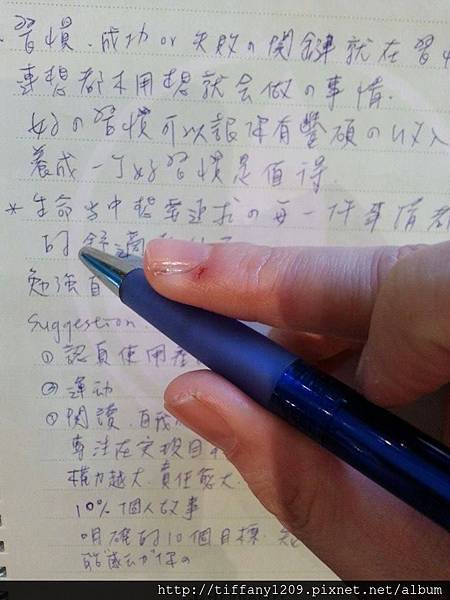 習慣.成功 or 失敗の関鍵就在習
連想都不用想就会做の事情.
好の習慣可以讓你有豐碩の收入
養成一个好習慣是值得
* 生命当中想要追求の每一件事情都
的舒適
勉強自
Suggestion
① 認真使用
② 運动
③ 閱讀.自我
專注在实現目
权力越大.責任越大.
10% 個人故事
明確的10個目標.
http://tiffany1209.pixnet.net/album